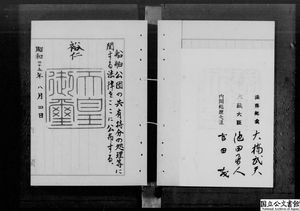 船舶公団の共有持分の処理等に
関する法律をここに公布する。
裕仁
天皇
御璽
昭和二十五年八月四日
法務総裁 大橋武夫
大蔵大臣 池田勇人
内閣総理大臣 吉田茂
国立公文書館